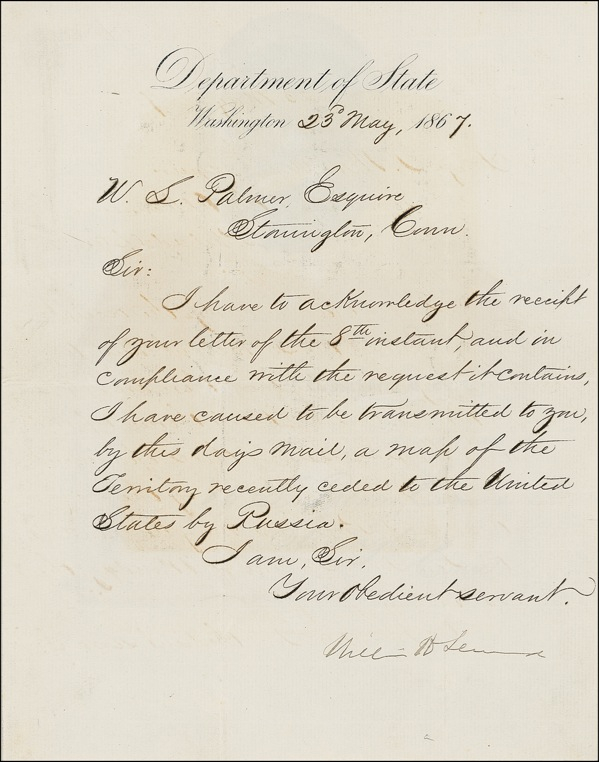 Department of State
Washington 23d May, 1867.
W. L. Palmer, Esquire
Stonington, Conn.
Sir:
I have to acknowledge the receipt
of your letter of the 8th instant, and in
compliance with the request it contains,
I have caused to be transmitted to you,
by this days mail, a map of the
Territory recently ceded to the United
States by Russia.
I am, Sir,
Your obedient servant.
William H Seward